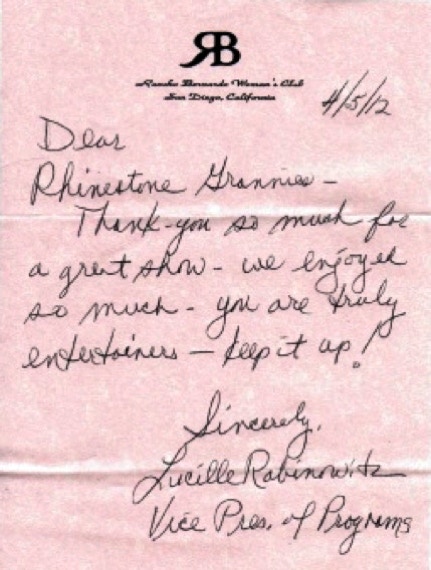 RB
Rancho Bernardo Woman's Club
San Diego, California
4/5/12
Dear
Rhinestone Grannies –
Thank-you so much for
a great show - we enjoyed
so much - you are truly
entertainers — keep it up!
Sincerely,
Lucille Rabinowitz
Vice Pres. of Programs